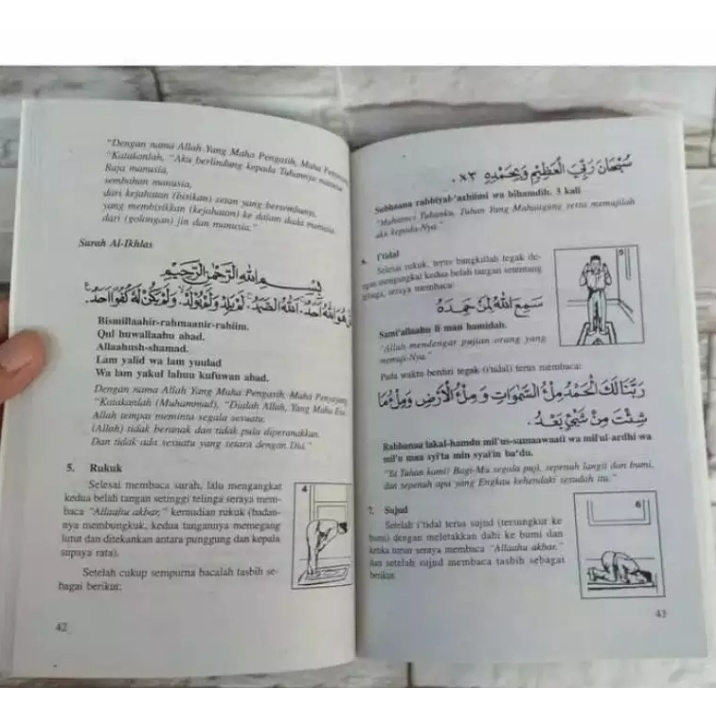 "Dengan nama Allah Yang Maha Pengasih, Maha Penyayang
"Katakanlah, "Aku berlindung kepada Tuhannya manusia
Raja manusia,
sembahan manusia,
dari kejahatan (bisikan) setan yang bersembunyi,
yang membisikkan (kejahatan) ke dalam dada manusia,
dari (golongan) jin dan manusia."
Surah Al-Ikhlas
بِسْمِ اللهِ الرَّحْمٰنِ الرَّحِيْمِ
هُوَ اللهُ اَحَدٌ. اَللهُ الصَّمَدُ. لَمْ يَلِدْ وَلَمْ يُوْلَدْ. وَلَمْ يَكُنْ لَهُ كُفُوًا اَحَدٌ.
Bismillaahir-rahmaanir-rahiim.
Qul huwallaahu ahad.
Allaahush-shamad.
Lam yalid wa lam yuulad
Wa lam yakul lahuu kufuwan ahad.
Dengan nama Allah Yang Maha Pengasih, Maha Penyayang
"Katakanlah (Muhammad), "Dialah Allah, Yang Maha Esa
Allah tempat meminta segala sesuatu.
(Allah) tidak beranak dan tidak pula diperanakkan.
Dan tidak ada sesuatu yang setara dengan Dia."
5. Rukuk
Selesai membaca surah, lalu mengangkat
kedua belah tangan setinggi telinga seraya mem-
baca "Allaahu akbar," kemudian rukuk (badan-
nya membungkuk, kedua tangannya memegang
lutut dan ditekankan antara punggung dan kepala
supaya rata).
Setelah cukup sempurna bacalah tasbih se-
bagai berikut:
4
42
سُبْحَانَ رَبِّيَ الْعَظِيْمِ وَبِحَمْدِهِ ×٣.
Subhaana rabbiyal-'azhiimi wa bihamdih. 3 kali
"Mahasuci Tuhanku, Tuhan Yang Mahaagung serta memujilah
aku kepada-Nya."
6. I'tidal
Selesai rukuk, terus bangkitlah tegak de-
ngan mengangkat kedua belah tangan setentang
telinga, seraya membaca:
5
سَمِعَ اللهُ لِمَنْ حَمِدَهُ
Sami'allaahu li man hamidah.
"Allah mendengar pujian orang yang
memuji-Nya."
Pada waktu berdiri tegak (i'tidal) terus membaca:
رَبَّنَا لَكَ الْحَمْدُ مِلْءُ السَّمٰوَاتِ وَمِلْءُ الْاَرْضِ وَمِلْءُ مَا
شِئْتَ مِنْ شَيْئٍ بَعْدُ.
Rabbanaa lakal-hamdu mil'us-samaawaati wa mil'ul-ardhi wa
mil'u maa syi'ta min syai'in ba'du.
"Ya Tuhan kami! Bagi-Mu segala puji, sepenuh langit dan bumi,
dan sepenuh apa yang Engkau kehendaki sesudah itu."
7. Sujud
Setelah i'tidal terus sujud (tersungkur ke
bumi) dengan meletakkan dahi ke bumi dan
ketika turun seraya membaca "Allaahu akbar,"
dan setelah sujud membaca tasbih sebagai
berikut:
6
43